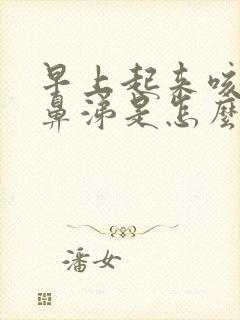 早上起来咳
鼻涕是怎麽
潘女